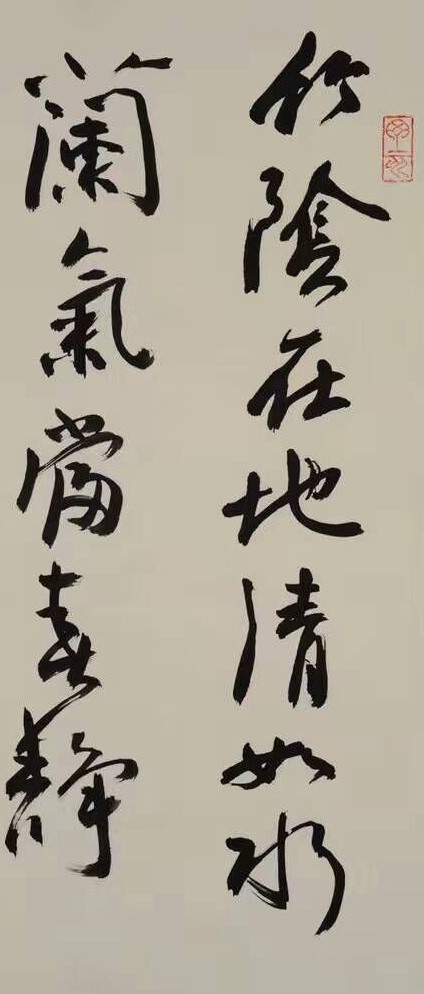 竹陰在地清如水
蘭氣當春靜